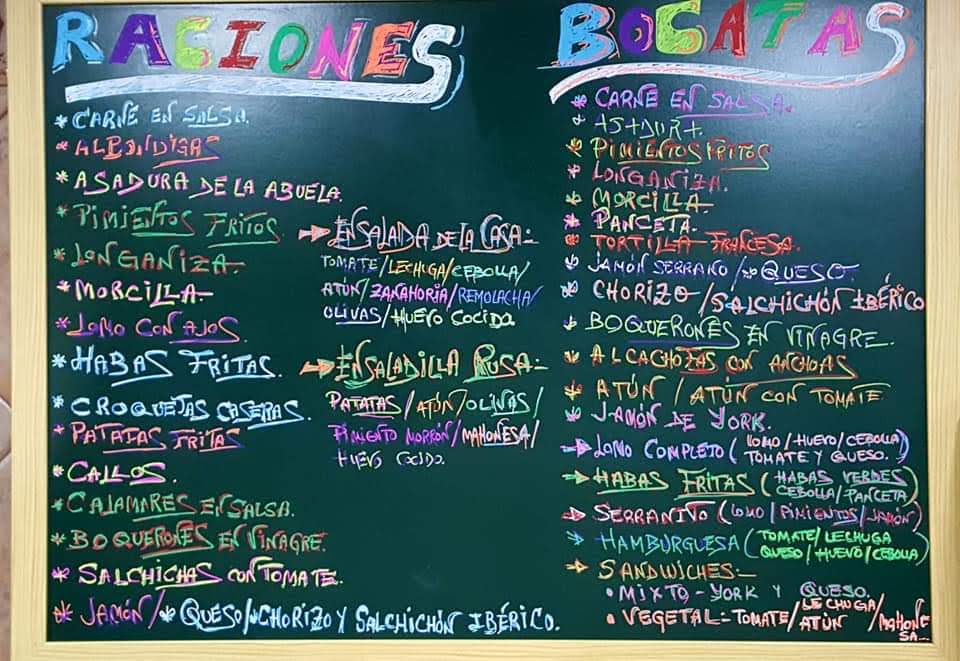 RACIONES
* CARNE EN SALSA.
* ALBÓNDIGAS
* ASADURA DE LA ABUELA.
* PIMIENTOS FRITOS.
* LONGANIZA.
* MORCILLA.
* LOMO CON AJOS.
* HABAS FRITAS.
* CROQUETAS CASERAS.
* PATATAS FRITAS
* CALLOS.
* CALAMARES EN SALSA.
* BOQUERONES EN VINAGRE.
* SALCHICHAS CON TOMATE.
* JAMÓN/* QUESO/*CHORIZO Y SALCHICHÓN IBÉRICO.
→ ENSALADA DE LA CASA:-
TOMATE/LECHUGA/CEBOLLA/
ATÚN/ZANAHORIA/REMOLACHA/
OLIVAS/HUEVO COCIDO
→ ENSALADILLA RUSA:-
PATATAS/ATÚN/OLIVAS/
PIMIENTO MORRÓN/MAHONESA/
HUEVO COCIDO.
BOCATAS
* CARNE EN SALSA.
* ASADURA.
* PIMIENTOS FRITOS
* LONGANIZA.
* MORCILLA.
* PANCETA.
* TORTILLA FRANCESA.
* JAMÓN SERRANO/* QUESO.
* CHORIZO/SALCHICHÓN IBÉRICO
* BOQUERONES EN VINAGRE.
* ALCACHOFAS CON ANCHOAS
* ATÚN / ATÚN CON TOMATE
* JAMÓN DE YORK.
→ LOMO COMPLETO (LOMO/HUEVO/CEBOLLA
TOMATE Y QUESO.)
→ HABAS FRITAS (HABAS VERDES
CEBOLLA/PANCETA)
→ SERRANITO (LOMO/PIMIENTOS/JAMÓN)
→ HAMBURGUESA (TOMATE/LECHUGA
QUESO/HUEVO/CEBOLLA)
→ SANDWICHES:-
• MIXTO - YORK Y QUESO.
• VEGETAL:- TOMATE/LECHUGA/ATÚN/MAHONESA...